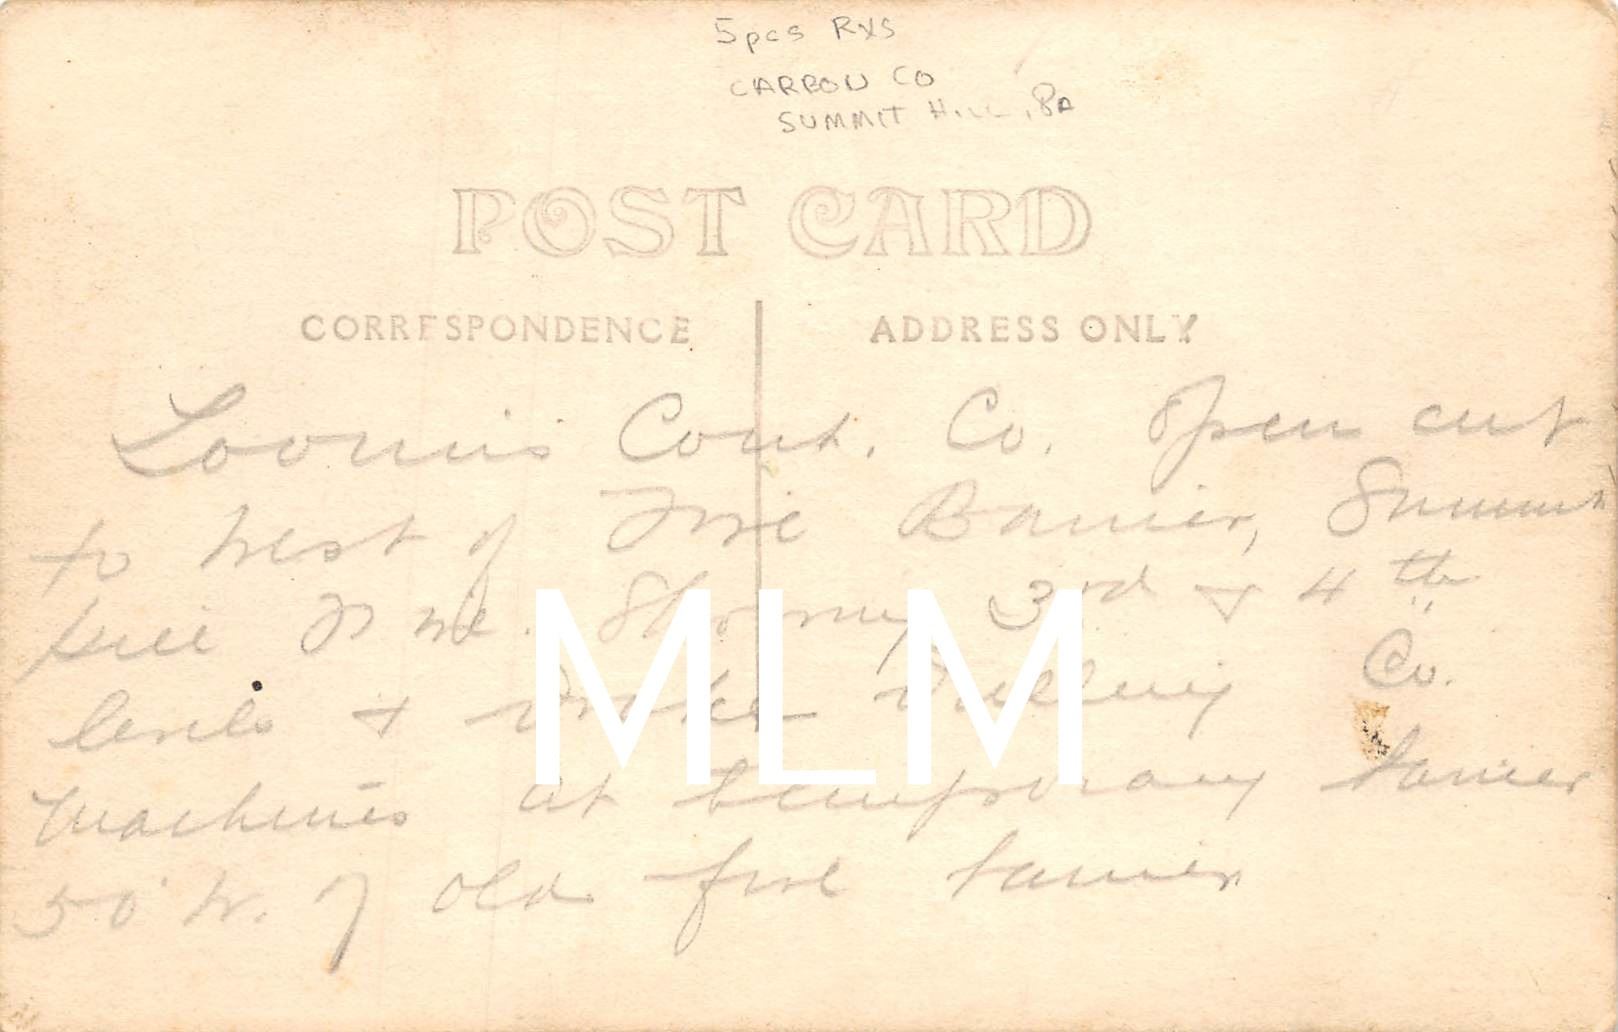 5pcs RXS
CARBON CO
SUMMIT HILL, PA
POST CARD
CORRESPONDENCE
ADDRESS ONLY
Loomis Cont. Co. Open cut
to West of Fire Barrier, Summit
Hill Fire. Showing 3rd & 4th
levels & Drake Drilling Co.
Machines at temporary barrier
50' W. of old fire barrier
MLM